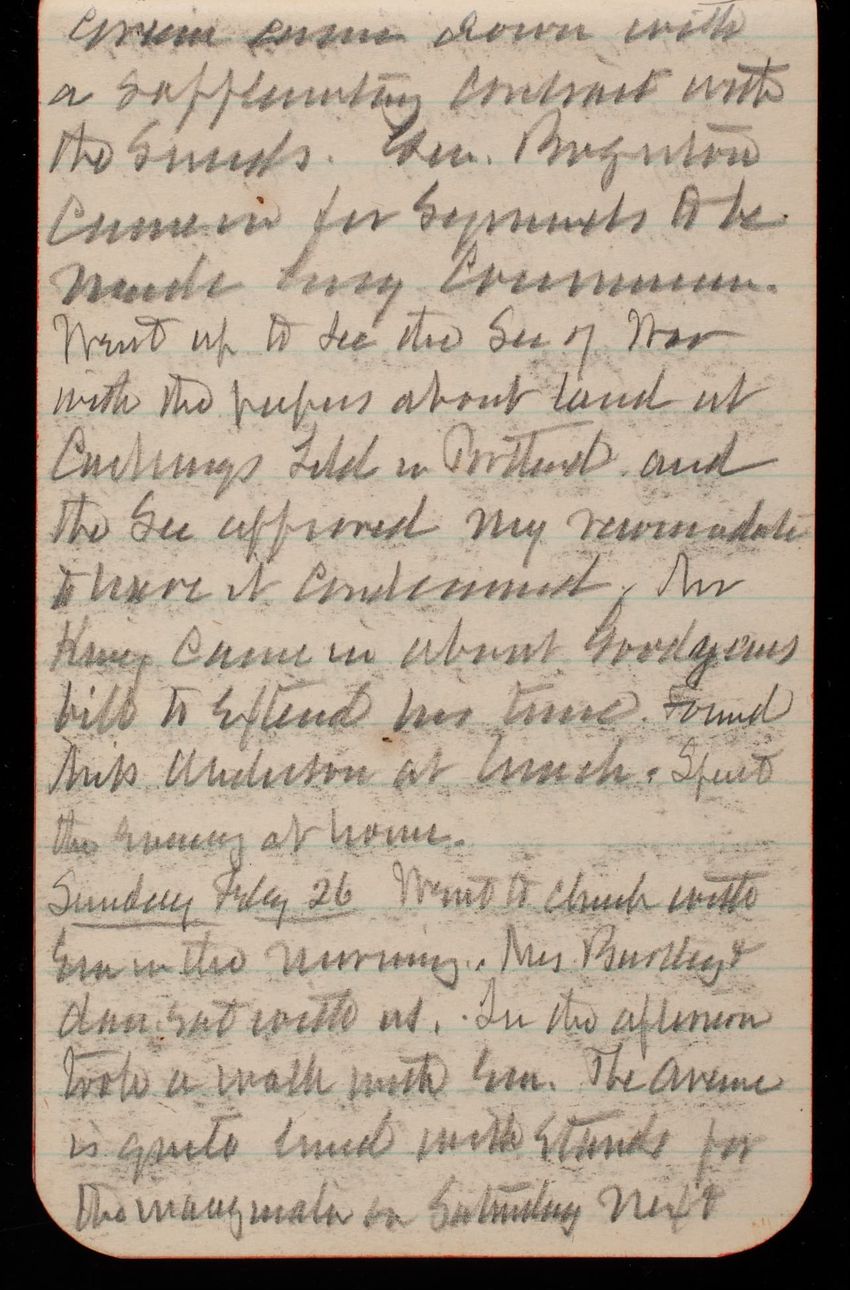 came down with
a supplementary contract with
the Genl. Boynton
Came in for Signwork to be
made by Commission.
Went up to See the Sec of War
with the papers about land at
Cushings Isld in Portland and
the Sec approved my recomadatn
to have it Condemned. Mr
King Came in about Goodyears
bill to Extend his time. Found
Miss Anderson at lunch. Spent
the Evening at home.
Sunday Feby 26 Went to church with
Em in the morning. Mrs &
dau. sat with us. In the afternoon
took a walk with Em. The avenue
is quite lined with Stands for
the inauguratn on Saturday Next